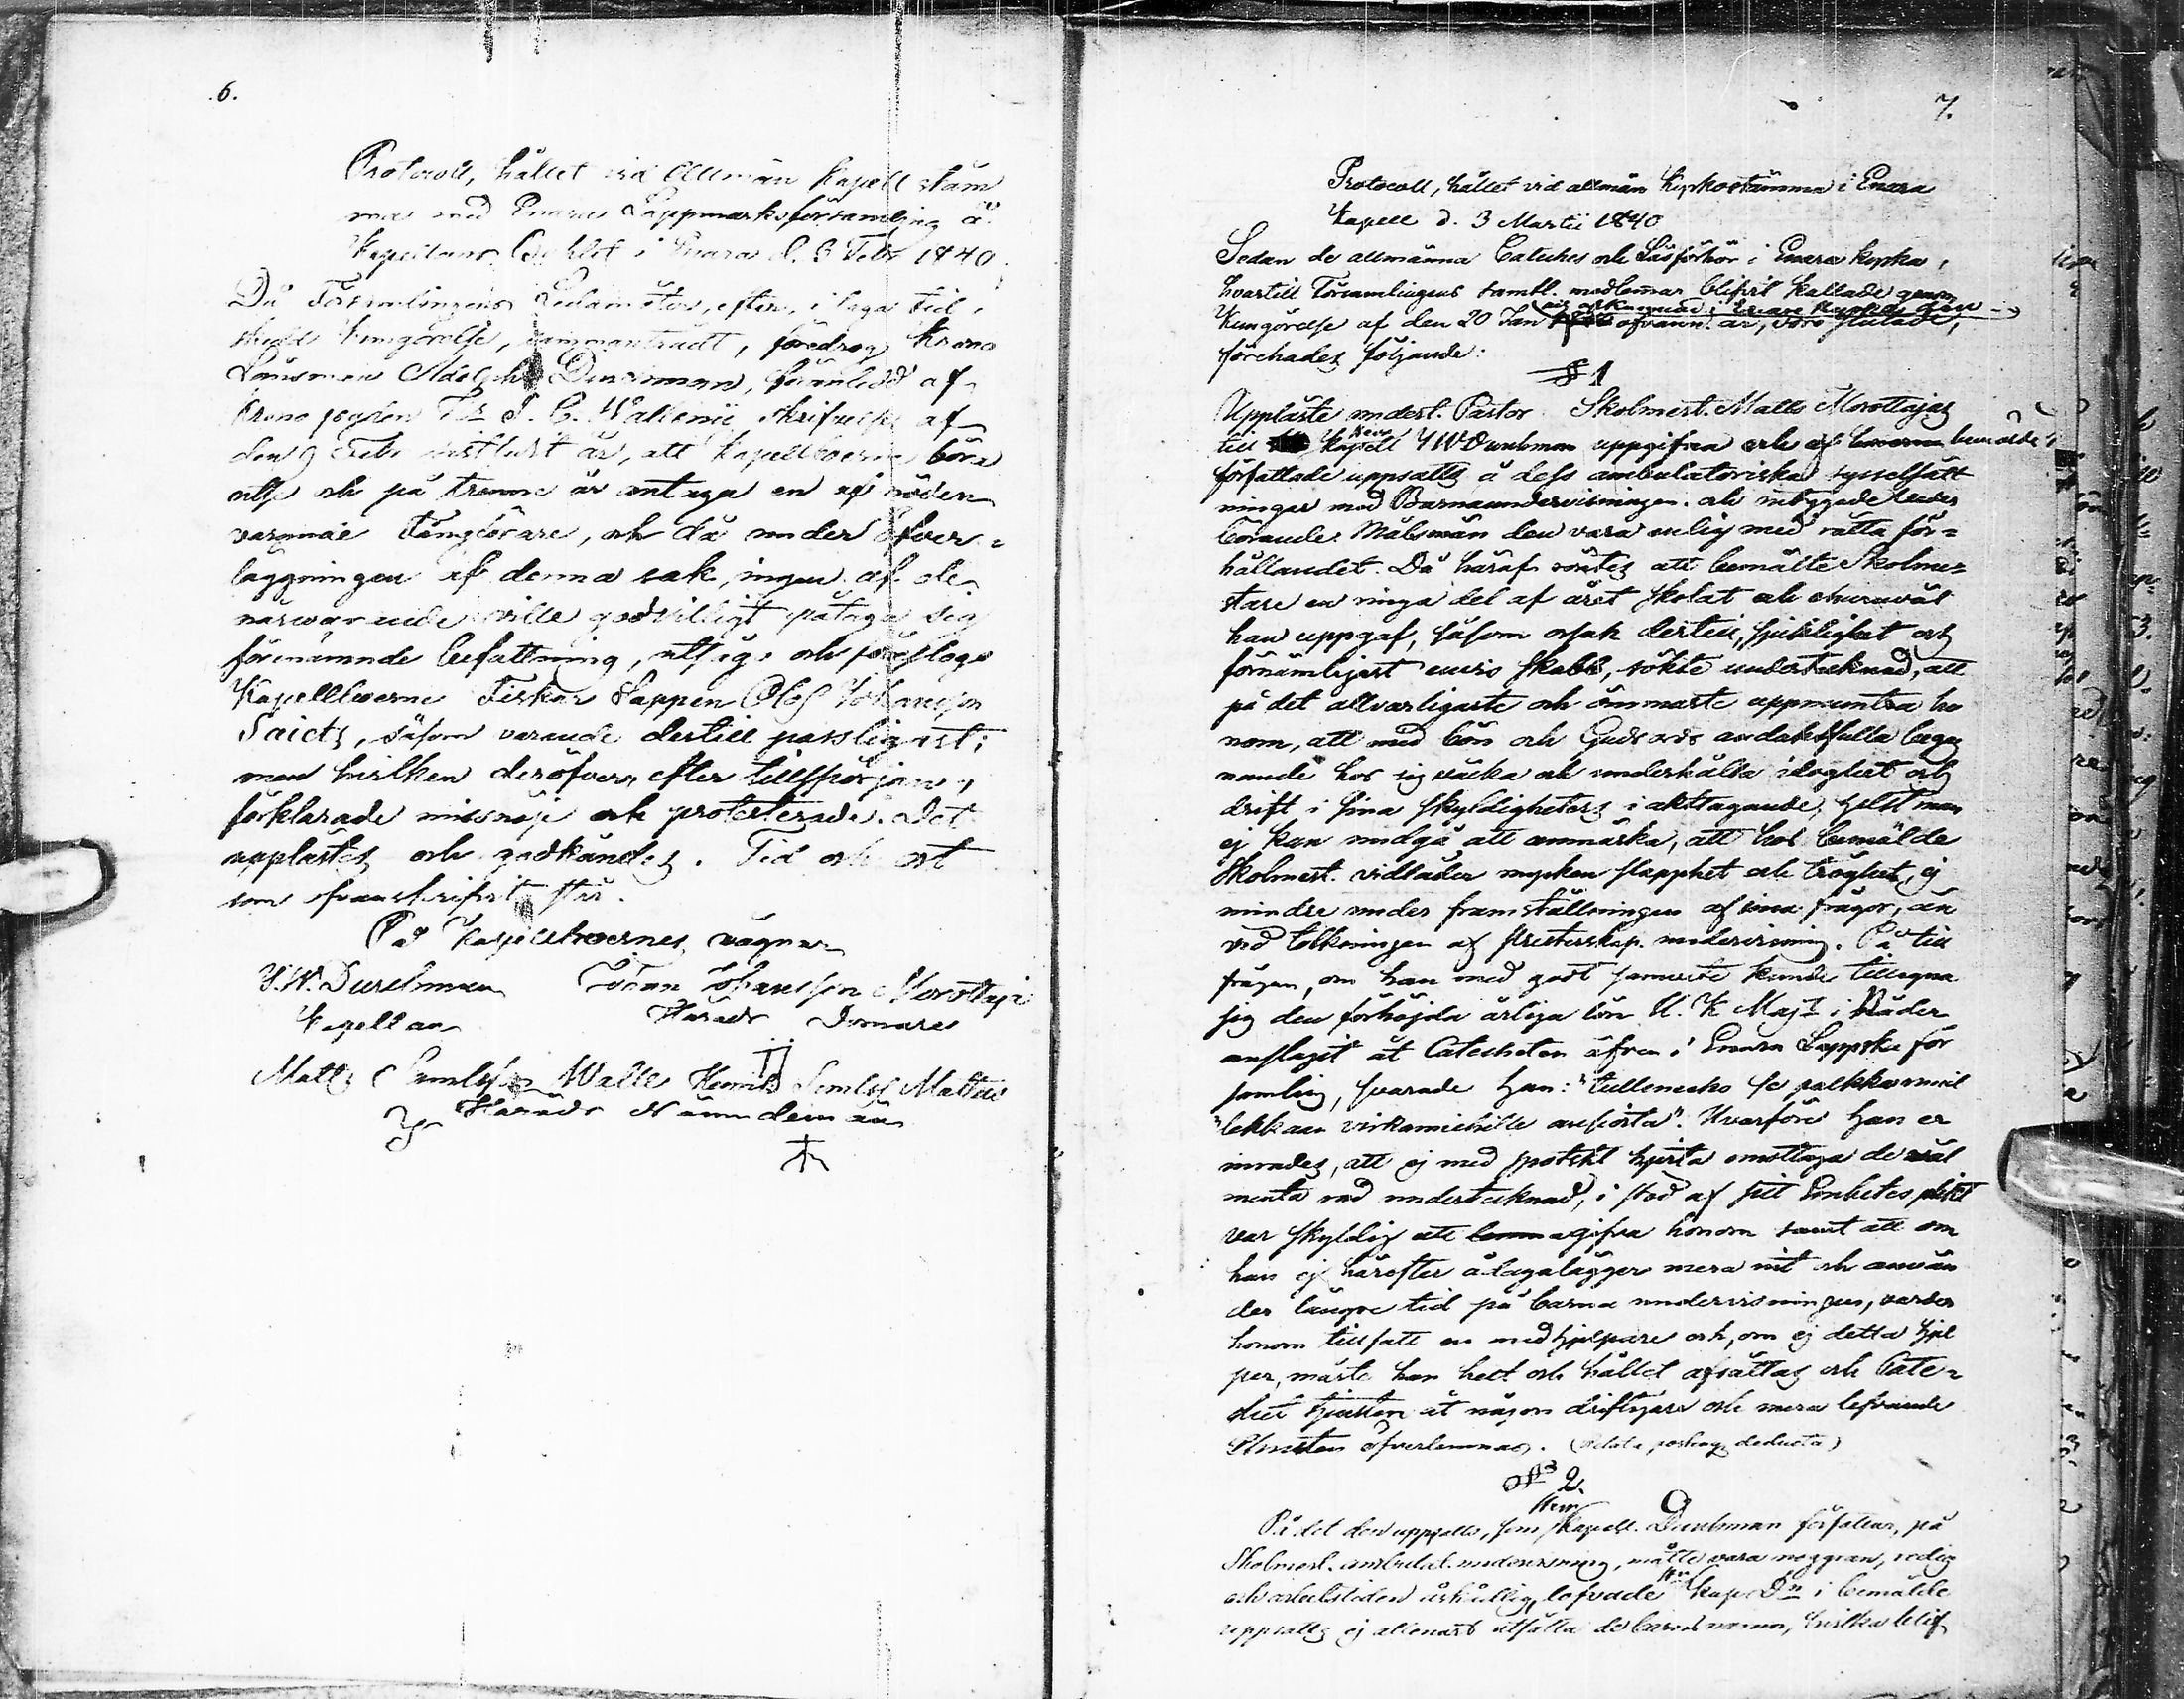 6.
Protocoll, hållet vid Allmän Kapell stäm
ma med Enare Lappmarksförsamling å
Kapellans Bohlet i Enara d. 3 Febr 1840
Då Församlingens Ledamöter, efter, i laga tid,
skedd kungörelse, sammanträdt, föredrog Krono
Länsman Adolph Durchman, föranledd af
Krono fogden J. C. Wallenii skrifvelse af
den 9 sistlidet år, att Kapellboerne böra
utse och på trenne år antaga en af nöden
varande Fångförare, och då under öfver-
läggningen af denna sak, ingen af de
närwarande ville godvilligt påtaga sig
förenämnde befattning, utsågo och föreslogo
Kapellboerne Fiskar Lappen Olof Johansson
Saiets, såsom varande dertill passligast;
men hvilken deröfver, efter tillspörjan,
förklarade missnöje och protesterade. Det
upplästes och godkändes. Tid och ort
som ofvanskrifvit står.
På Kapellboernes vägnar
J.W. Durchman Johan Johansson Morottaja
Kapellan Härads Domare
Matts Samlsson Walle Henrik Samlss Mattus
Härads Nämndemän
7.
Protocoll, hållet vid allmän Kyrkostämma i Enara
Kapell d. 3 Martii 1840
Sedan de allmänna Cateches och Läsförhör i Enare kyrka,
hvartill Församlingens samtl. medlemmar blifvit kallade genom
en afkunnad i Enare Kyrka den
Kungörelse af den 20 Jan ofvann. år, voro slutade,
förehades följande:
§ 1
Uppläste undert. Pastor Skolmest. Matts Morottajas
till Herr Kapell J W Durchman uppgifna och af bemälde
författade uppsatts å dess ambulatoriska sysselsätt
ningar med Barnaundervisningen. och intygade veder
börande Målsmän den vara enlig med rätta för-
hållandet. Då häraf röntes att bemälte Skolme-
stare en ringa del af året skolat och ehuruväl
han uppgaf, såsom orsak dertill, sjuklighet och
förnämligast skabb, sökte undertecknad, att
på det allvarligaste och ömmaste uppmuntra ho
nom, att med bön och Guds ords andaktsfulla begag
nande hos sig väcka och underhålla idoghet och
drift i sina skyldigheters i akttagande; helst man
ej kan undgå att anmärka, att hos bemälde
Skolmest. vidlåder mycken slapphet och tröghet, ej
mindre under framställningen af sina frågor, än
vid tolkningen af Presterskap. undervisning. På till
frågan, om han med godt samvete kunde tillegna
sig den förhöjda årliga lön H. K. Majt i Nåder
anslagit åt Catecheten äfven i Enara Lappska för
samling, svarade han: "tulleneeko se palkka
virkamiehille". Hvarföre han er
inrades, att ej med spotskt hjerta emottaga de väl
menta råd undertecknad, i stöd af sitt Embetes plikt
var skyldig att gifva honom samt att om
han ej härefter ådagalägger mera nit och använ
der längre tid på barna undervisningen, varder
honom tillsatt en medhjelpare och, om ej detta hjel
per, måste han helt och hållet afsättas och Cate-
chet tjensten åt någon driftigare och mera lefvande
Christen öfverlemnas. (deducta)
§ 2.
På det den uppsatts, som Herr Kapell. Durchman författar, på
Skolmest. ambulat. undervisning, måtte vara noggran, redig
och arbetstiden urskillig, lofvade Herr Kap. Dn i bemälde
uppsatts ej allenast utsätta de barns namn, hvilka blif